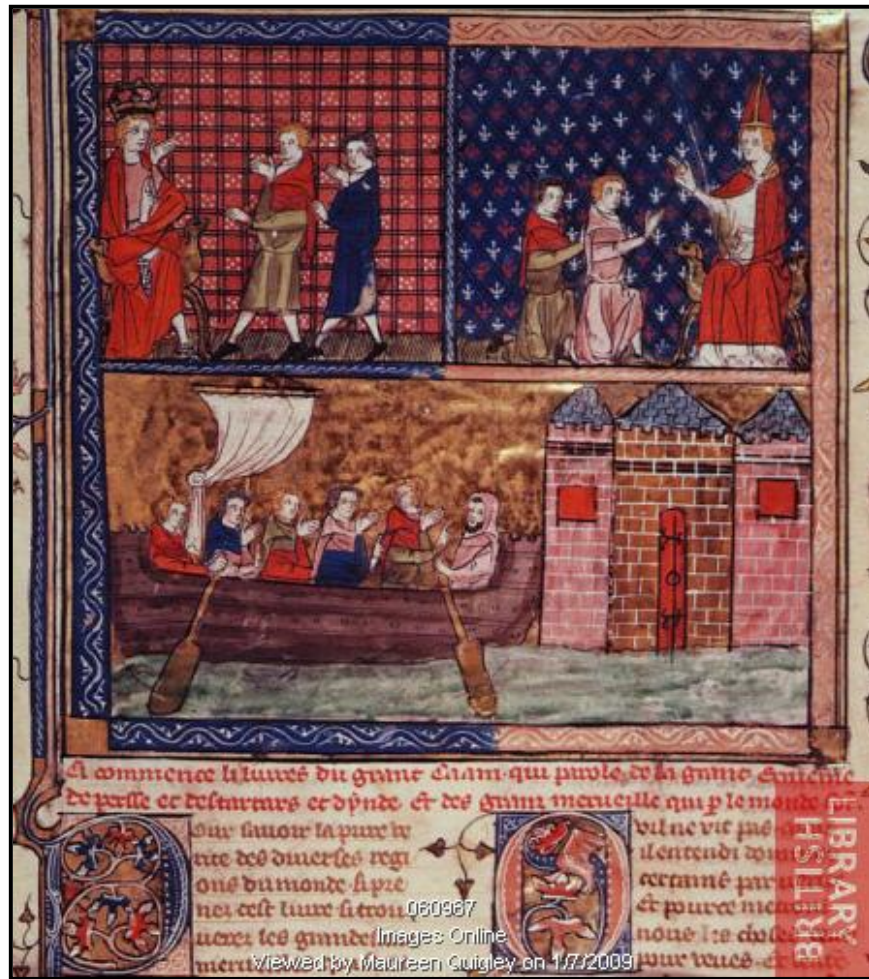 Ci commence li liures du graunt Caam. qui parole de la graunt Ermenie
de persse et des tartars et dynde Et des granz merueille qui p le monde
Pour sauoir la pure ve
rite des diuerses regi
ons du monde. si pre
nez cest liure si trou
uerez les grandes
Quil ne vit pas
il entendi
certains par
Et pource
nous les choses
pour veues
060967
Images Online
Viewed by Maureen Quigley on 1/7/2009
BRITISH
LIBRARY